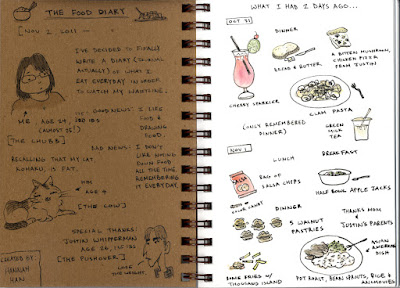 THE FOOD DIARY
[NOV 2, 2011 —
I'VE DECIDED TO FINALLY
WRITE A DIARY (JOURNAL
ACTUALLY) OF WHAT I
EAT EVERYDAY IN ORDER
TO WATCH MY WAISTLINE.
ME, AGE 24, 180 LBS
(ALMOST 25!)
[THE CHUBB]
GOOD NEWS: I LIKE
FOOD &
DRAWING
FOOD.
BAD NEWS: I DON'T
LIKE WRITING
DOWN FOOD
ALL THE TIME.
REMEMBERING
IT EVERYDAY.
REALIZING THAT MY CAT,
KOHAKU, IS FAT.
HIM
AGE 4
[THE COW]
SPECIAL THANKS:
JUSTIN WHIPPERMAN
AGE 26, 155 LBS
[THE PUSHOVER]
LOSE
THE WEIGHT!
CREATED BY:
HANNAH
HAN
WHAT I HAD 2 DAYS AGO...
OCT 31
DINNER
BREAD & BUTTER
2 BITTEN MUSHROOM,
CHICKEN PIZZA
FROM JUSTIN
CHERRY SPARKLER
CLAM PASTA
(ONLY REMEMBERED
DINNER)
GREEN
MILK
TEA
NOV 1
LUNCH
BREAKFAST
SALSA
BAG OF
SALSA CHIPS
HALF BOWL APPLE JACKS
DINNER
THANKS MOM &
JUSTIN'S PARENTS
5 WALNUT
PASTRIES
ASIAN
AMERICAN
DISH
SOME FRIES W/
THOUSAND ISLAND
POT ROAST, BEAN SPROUTS, RICE &